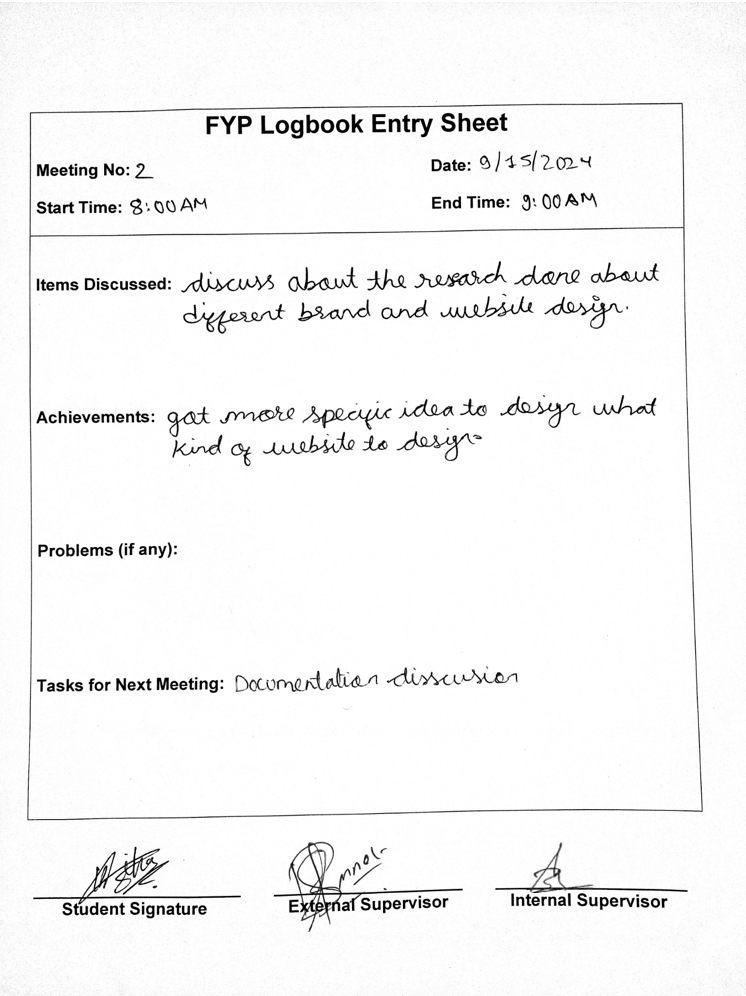 FYP Logbook Entry Sheet
Meeting No: 2
Date: 9/15/2024
Start Time: 8:00 AM
End Time: 9:00 AM
Items Discussed: discuss about the resarch done about
different brand and website design.
Achievements: got more specific idea to design what
kind of website to design
Problems (if any):
Tasks for Next Meeting: Documentation disscusion
Student Signature
External Supervisor
Internal Supervisor